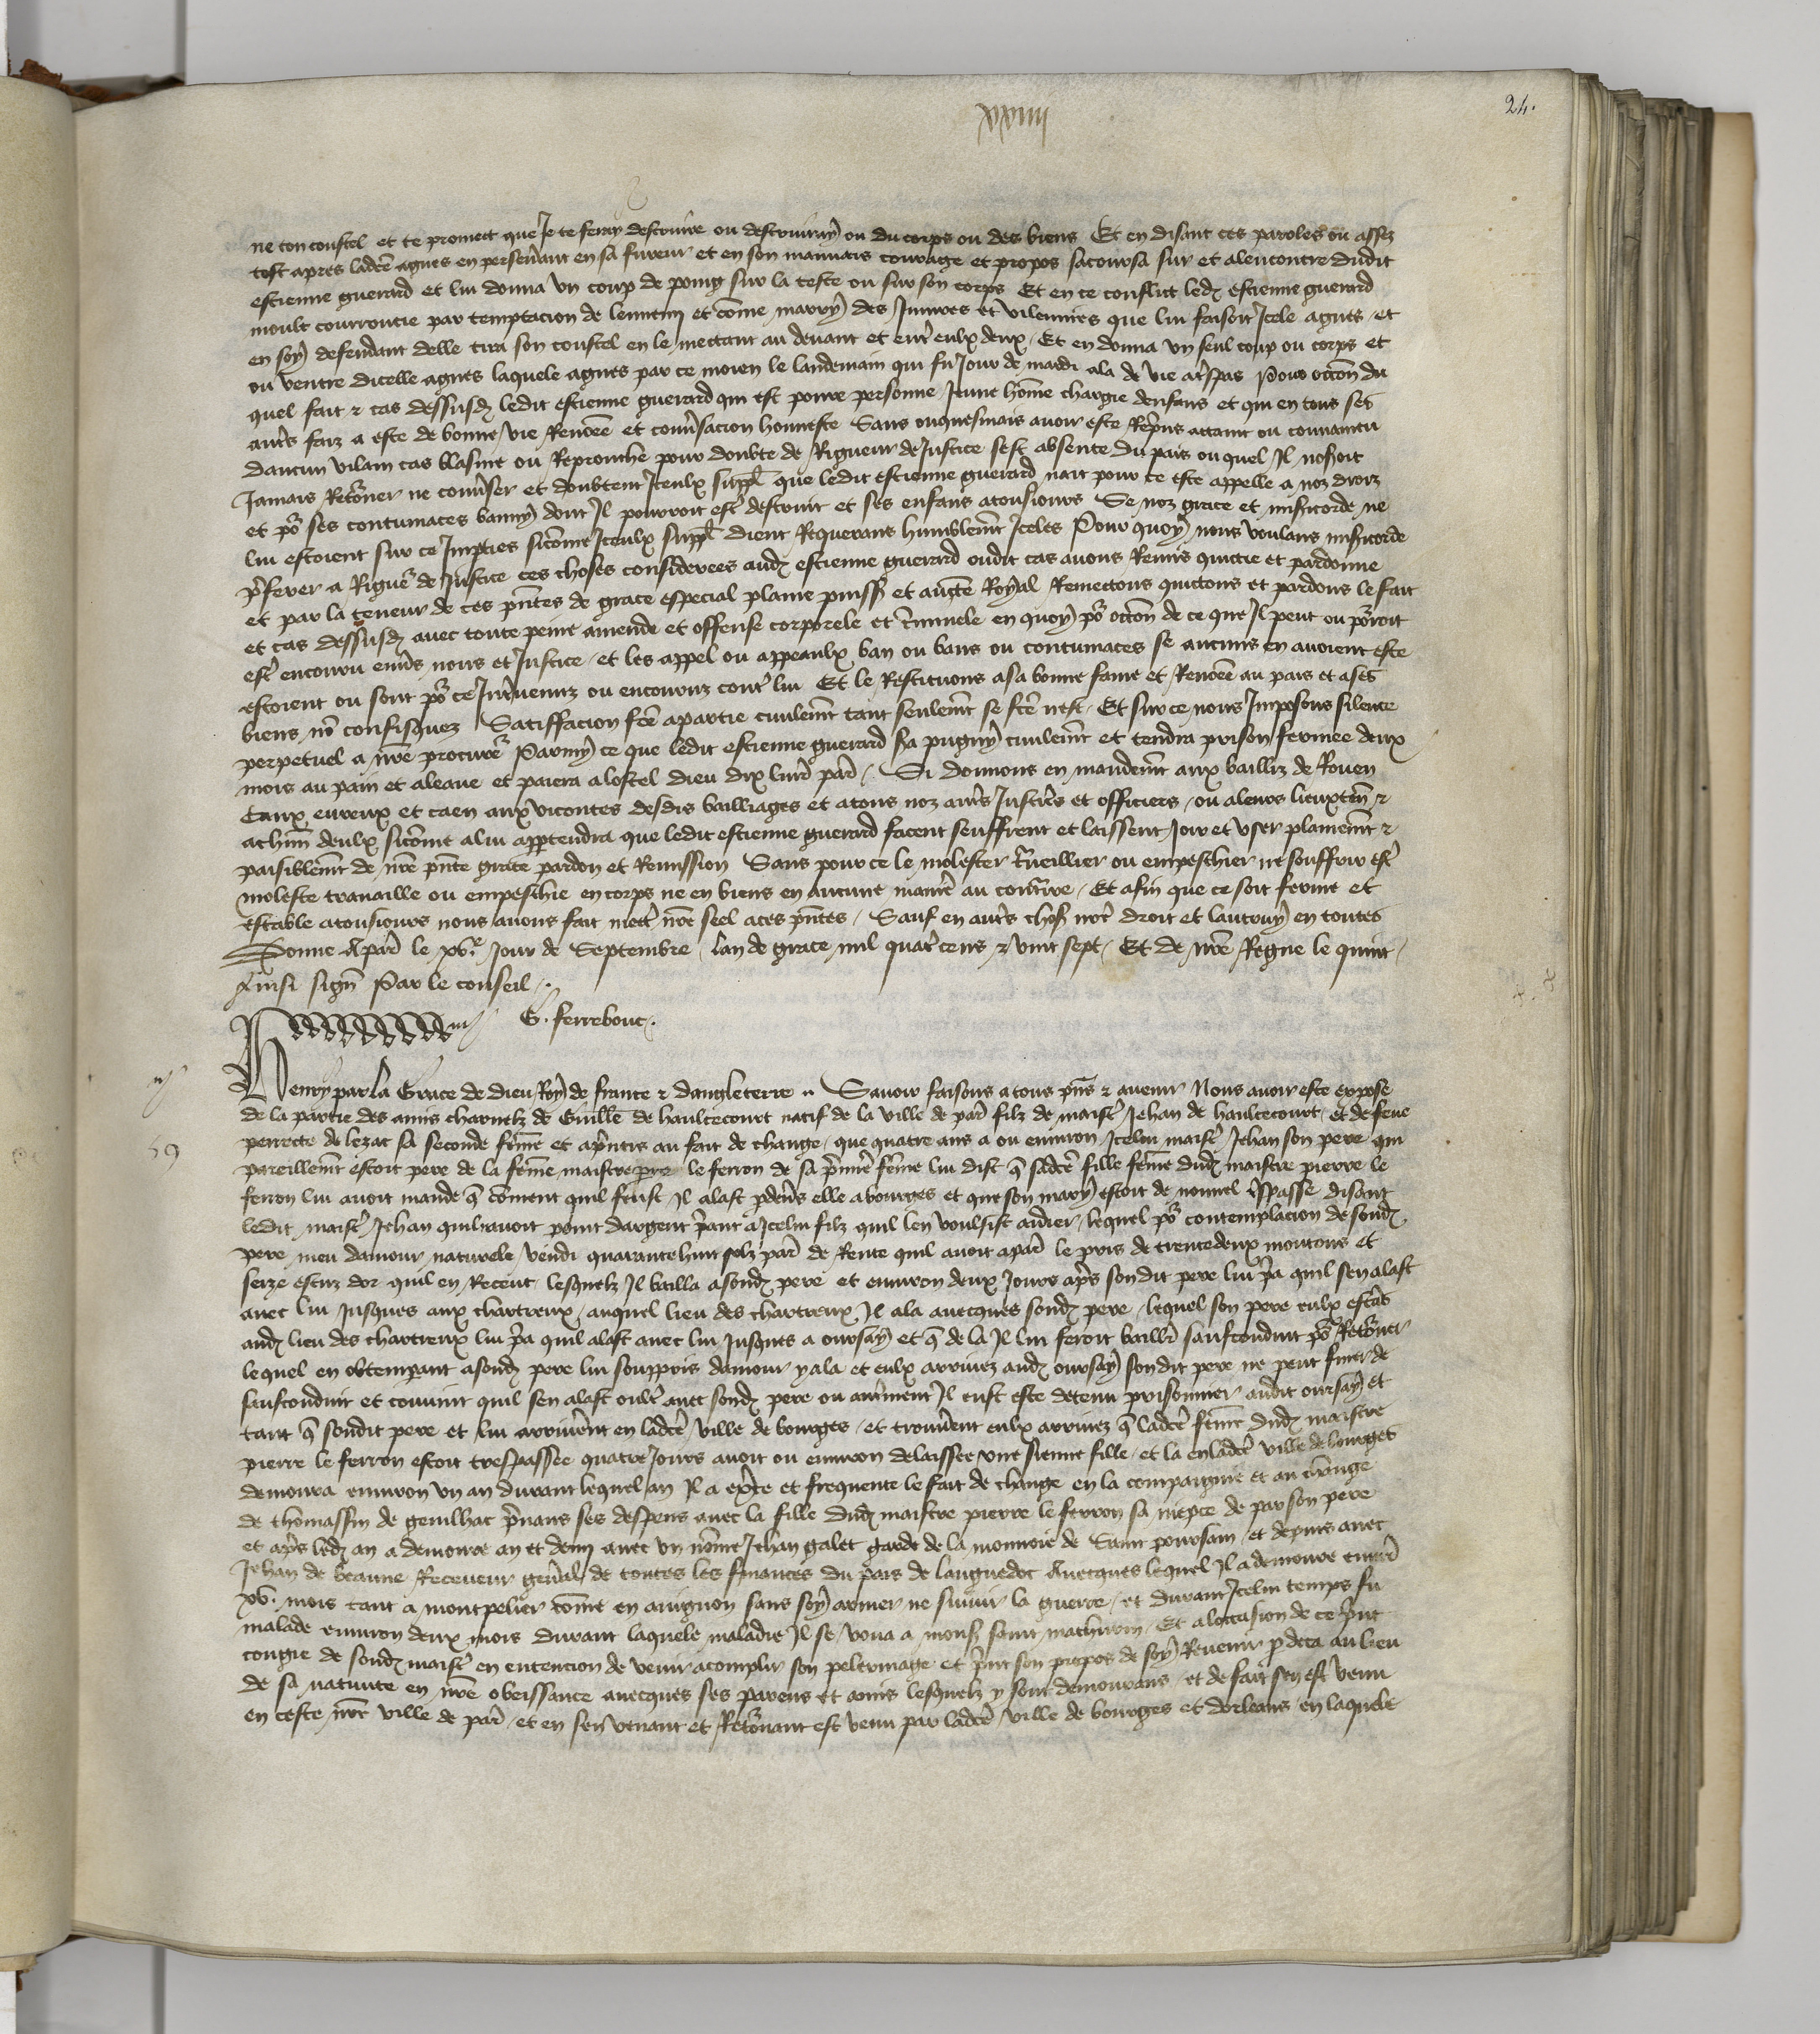 xxiiii
24.
ne ton coustel et te promect que Je te feray destruire ou destruiray ou du corps ou des biens Et en disant ces paroles ou assez
tost apres ladicte agnes en perseverant en sa fureur et en son mauvais courage et propos sacoursa sur et alencontre dudit
estienne guerard et lui donna un coup de poing sur la teste ou sur son corps Et en ce conflict ledit estienne guerard
moult courroucie par temptacion de lennemi et comme marry des Injures et vilennies que lui faisoit Icele agnes et
en soy defendant delle tira son coustel en le mectant au devant et entre eulx deux Et en donna un seul coup ou corps et
ou ventre dicelle agnes laquele agnes par ce moien le landemain qui fu Jour de mardi ala de vie a trespas Pour occasion du
quel fait et cas dessusdit ledit estienne guerard qui est povre personne Jeune homme chargie denfans et qui en tous ses
autres faiz a este de bonne vie Renomee et conversacion honneste Sans onquesmais avoir este Repris attaint ou convaincu
daucun vilain cas blasme ou Reprouche pour doubte de Rigueur de Justice sest absente du pais ouquel Il noseroit
Jamais Retourner ne converser et doubtent Iceulx suppl que ledit estienne guerard nait pour ce este appelle a noz droiz
et pour ses contumaces banny dont Il pourroit estre destruit et ses enfans atousjours Se noz grace et misericorde ne
lui estoient sur ce Imparties sicomme Iceulx suppl dient Requerans humblement Iceles Pour quoy nous voulans misericorde
preferer a Rigueur de Justice ces choses considerees audit estienne guerard oudit cas avons Remis quictie et pardonne
et par la teneur de ces presentes de grace especial plaine puissance et auctorite Royal Remectons quictons et pardons le fait
et cas dessusdit avec toute peine amende et offense corporele et criminele en quoy pour occasion de ce que Il peut ou pourroit
estre encouru envers nous et Justice et les appel ou appeaulx ban ou bans ou contumaces se aucuns en avoient este
estoient ou sont pour ce Intervenuz ou encouruz contre lui Et le Restituons asa bonne fame et Renomee au pais et ases
biens non confisquez Satisfacion faicte apartie civilement tant seulement se faicte nest Et sur ce nous Imposons silence
perpetuel a nostre procureur Parmy ce que ledit estienne guerard sera pugny civilement et tendra prison fermee deux
mois au pain et aleaue et paiera alostel dieu dix livres parisis Si donnons en mandement aux bailliz de Rouen
Caux evreux et caen aux vicontes desdis bailliages et atous noz autres Justiciers et officiers ou aleurs lieuxtenans et
achascun deulx sicomme alui appartendra que ledit estienne guerard facent seuffrent et laissent Joir et user plainement et
paisiblement de nostre presente grace pardon et Remission Sans pour ce le molester traveillier ou empeschier ne souffrir estre
moleste travaille ou empeschie en corps ne en biens en aucune maniere au contraire Et afin que ce soit ferme et
estable atousjours nous avons fait mectre nostre seel aces presentes Sauf en autres choses nostre droit et lautruy en toutes
Donne A paris le xve Jour de Septembre Lan de grace mil quatre cens et vint sept Et de nostre Regne le quint
Ainsi signe Par le conseil
G. ferrebouc.
Henry par la Grace de Dieu Roy de france et dangleterre Savoir faisons atous presens et avenir Nous avoir este expose
de la partie des amis charnelz de Guillemin de haultecourt natif de la ville de paris filz de maistre Jehan de haultecourt et de feue
perrecte de lezac sa seconde femme et aprentis au fait de change que quatre ans a ou environ Icelui maistre Jehan son pere qui
pareillement estoit pere de la femme maistre pierre le ferron de sa premiere femme lui dist que sadicte fille femme dudit maistre pierre le
ferron lui avoit mande que comment quil feust Il alast pardevers elle abourges et que son mary estoit de nouvel trespasse disant
ledit maistre Jehan quil navoit point dargent priant a Icelui filz quil len voulsist aidier lequel pour contemplacion de sondit
pere meu damour naturele vendi quarante huit solz parisis de Rente quil avoit aparis le pris de trentedeux moutons et
seize escuz dor quil en Receut lesquelz Il bailla asondit pere et environ deux Jours apres sondit pere lui pria quil sen alast
avec lui Jusques aux chartreux auquel lieu des chartreux Il ala avecques sondit pere lequel son pere eulx estans
audit lieu des chartreux lui pria quil alast avec lui Jusques a oursay et que de la Il lui feroit baillier saufconduit pour Retourner
lequel en obtemperant asondit pere lui souppris damour y ala et eulx arrivez audit oursay sondit pere ne peut finer de
saufconduit et convint quil sen alast oultre avec sondit pere ou autrement Il eust este detenu prisonnier audit oursay et
tant que sondit pere et lui arriverent en ladicte ville de bourges et trouverent eulx arrivez que ladicte femme dudit maistre
pierre le ferron estoit trespassee quatre Jours avoit ou environ delaissee une sienne fille et la en ladicte ville de bourges
demoura environ un an durant lequel an Il a exerce et frequente le fait de change en la compaignie et au change
de thomassin de genilhac prenans ses despens avec la fille dudit maistre pierre le ferron sa niepce de par son pere
et apres ledit an a demoure an et demi avec un nomme Jehan galet garde de la monnoie de Saint poursain et depuis avec
Jehan de beaune Receveur general de toutes les finances du pais de languedoc Avecques lequel Il a demoure environ
xv. mois tant a montpelier comme en avignon sans soy armer ne suivir la guerre et durant Icelui temps fu
malade environ deux mois durant laquele maladie Il se voua a monseigneur saint mathurin Et aloccasion de ce print
congie de sondit maistre en entencion de venir acomplir son pelerinage et print son propos de soy Revenir par deca au lieu
de sa nativite en nostre obeissance avecques ses parens et amis lesquelz y sont demourans et de fait sen est venu
en ceste nostre ville de paris et en sen venant et Retournant est venu par ladicte ville de bourges et dorleans en laquele